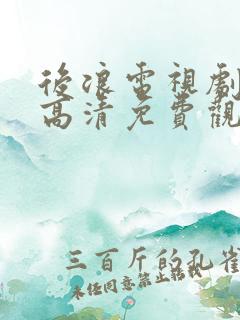 後浪電視劇
高清免費觀
三百斤的孔雀
未经同意禁止转载